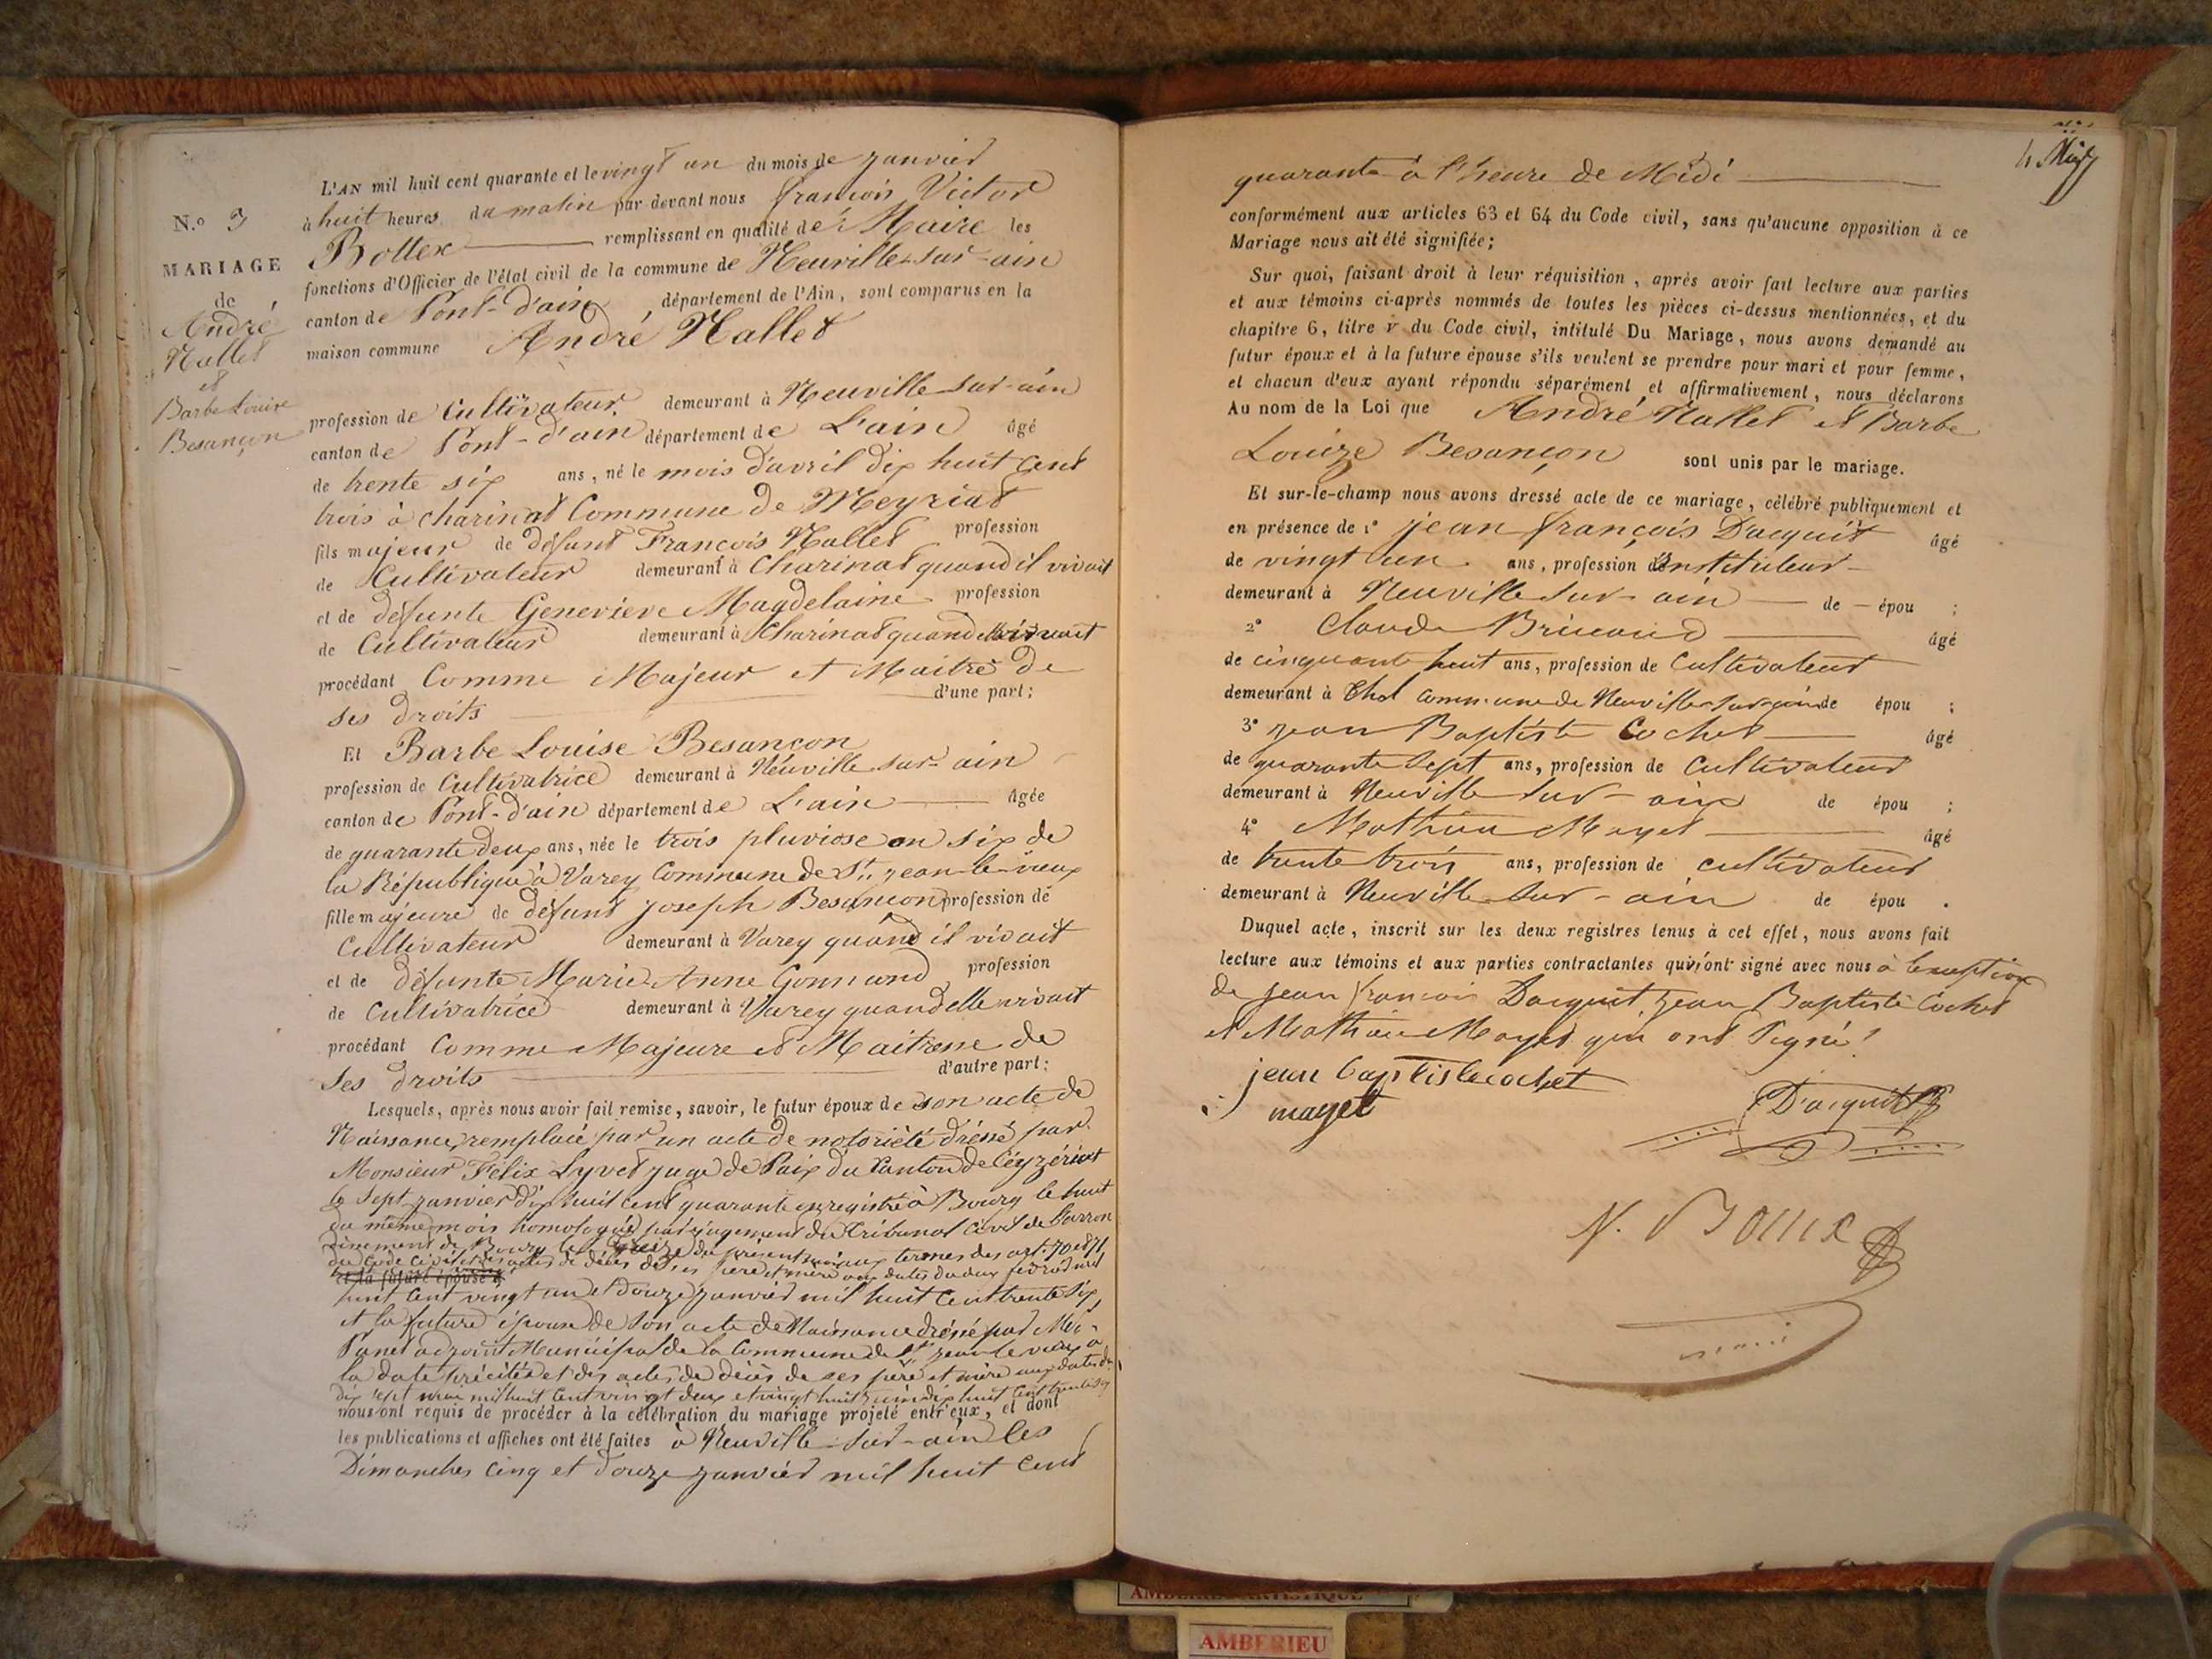 N.º 3
MARIAGE
de
André
Nallet
et
Barbe Louise
Besançon
L'AN mil huit cent quarante et le vingt un du mois de janvier
à huit heures du matin par-devant nous françois Victor
Bollex remplissant en qualité de Maire les
fonctions d'Officier de l'état civil de la commune de Neuville-sur-ain
canton de Pont-d'ain, département de l'Ain, sont comparus en la
maison commune André Nallet
profession de Cultivateur demeurant à Neuville sur-ain
canton de Pont-d'ain département de L'ain âgé
de trente six ans, né le mois d'avril dix huit cent
trois à charinat Commune de Meyriat
fils majeur de défunt François Nallet profession
de Cultivateur demeurant à Charinat quand il vivait
et de défunte Genevieve Magdelaine profession
de Cultivateur demeurant à Charinat quand elle vivait
procédant Comme Majeur et Maitre de
ses droits d'une part;
Et Barbe Louise Besançon
profession de Cultivatrice demeurant à Neuville sur-ain
canton de Pont-d'ain département de L'ain âgée
de quarante deux ans, née le trois pluviose an six de
la République à Varey Commune de St. jean-le-vieux
fille majeure de défunt joseph Besançon profession de
Cultivateur demeurant à Varey quand il vivait
et de défunte Marie Anne profession
de Cultivatrice demeurant à Varey quand elle vivait
procédant Comme Majeure et Maitresse de
Ses droits d'autre part;
Lesquels, après nous avoir fait remise, savoir, le futur époux de son acte de
Naissance, remplacé par un acte de notoriété dréssé par
Monsieur Félix Lyvet juge de Paix du Canton de Céyzériat
le Sept janvier dix huit cent quarante enregistré à Bourg le huit
du même mois homologué par jugement du Tribunal Civil de l'arron
dissement de Bourg le treize du présent mois aux termes des art. 70 et 71
du Code Civil et des actes de décès de ses père et mère aux dates du deux
et la future épouse d
huit cent vingt un et douze janvier mil huit cent trente six,
et la future épouse de Son acte de Naissance dréssé par
Panet adjoint Municipal de la Commune de St. jean le vieux à
la date précitée et des actes de décès de ses père et mère aux dates du
dix sept mai mil huit Cent vingt deux et vingt huit juin dix huit cent trente six
nous ont requis de procéder à la célébration du mariage projeté entr'eux, et dont
les publications et affiches ont été faites à Neuville-sur-ain les
Dimanches Cinq et douze janvier mil huit Cent
quarante à l'heure de Midi
conformément aux articles 63 et 64 du Code civil, sans qu'aucune opposition à ce
Mariage nous ait été signifiée;
Sur quoi, faisant droit à leur réquisition, après avoir fait lecture aux parties
et aux témoins ci-après nommés de toutes les pièces ci-dessus mentionnées, et du
chapitre 6, titre v du Code civil, intitulé Du Mariage, nous avons demandé au
futur époux et à la future épouse s'ils veulent se prendre pour mari et pour femme,
et chacun d'eux ayant répondu séparément et affirmativement, nous déclarons
Au nom de la Loi que André Nallet et Barbe
Louize Besançon sont unis par le mariage.
Et sur-le-champ nous avons dressé acte de ce mariage, célébré publiquement et
en présence de 1º jean françois Dacquit âgé
de vingt un ans, profession d'instituteur
demeurant à Neuville sur-ain de épou ;
2º Claude âgé
de cinquante huit ans, profession de Cultivateur
demeurant à Thol Commune de Neuville-sur-ain de épou ;
3º jean Baptiste Cochet âgé
de quarante Sept ans, profession de Cultivateur
demeurant à Neuville Sur-ain de épou ;
4º Mathieu Mayet âgé
de trente trois ans, profession de Cultivateur
demeurant à Neuville Sur-ain de épou .
Duquel acte, inscrit sur les deux registres tenus à cet effet, nous avons fait
lecture aux témoins et aux parties contractantes qui n'ont signé avec nous à l'exception
de jean françois Dacquit, jean Baptiste Cochet
et Mathieu Mayet qui ont Signé!
jean baptiste cochet
mayet
Dacquit
V. Bollex
AMBERIEU